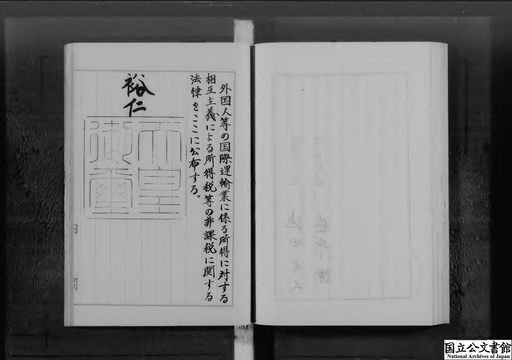 外国人等の国際運輸業に係る所得に対する
相互主義による所得税等の非課税に関する
法律をここに公布する。
裕仁
天皇
御璽
国立公文書館
National Archives of Japan